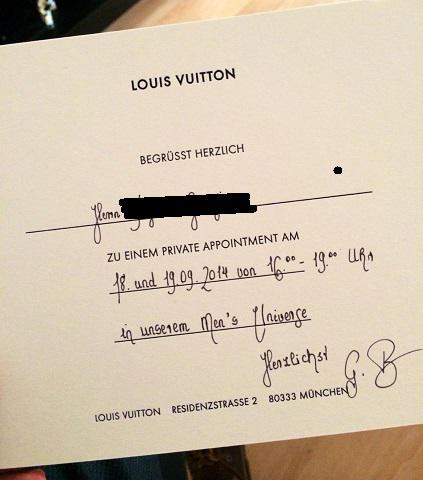 LOUIS VUITTON
BEGRÜSST HERZLICH
Herrn
ZU EINEM PRIVATE APPOINTMENT AM
18. und 19.09.2014 von 16.⁰⁰ - 19.⁰⁰ Uhr
in unserem Men's Universe
Herzlichst G. B
LOUIS VUITTON RESIDENZSTRASSE 2 80333 MÜNCHEN